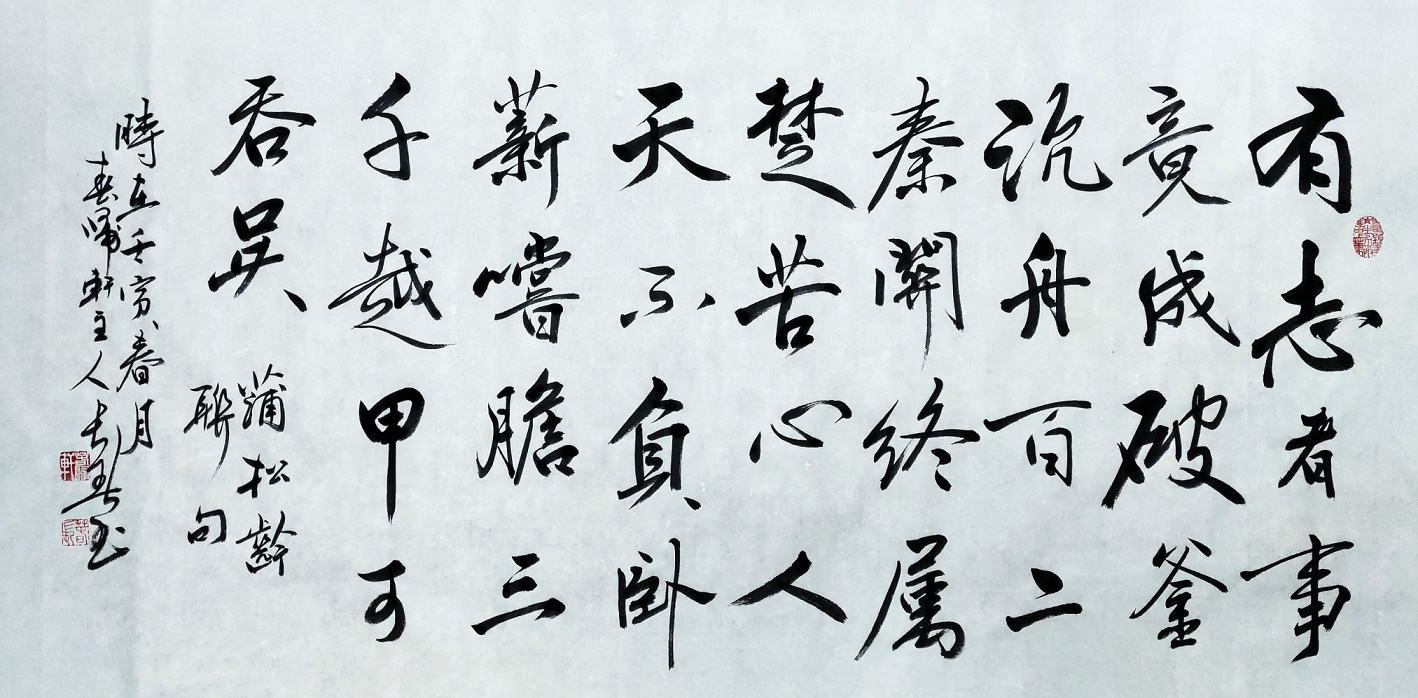 有志者事
竟成破釜
沉舟百二
秦關終屬
楚苦心人
天不負卧
薪嚐膽三
千越甲可
吞吴
蒲松齡
聯句
時在壬寅春月
春歸軒主人